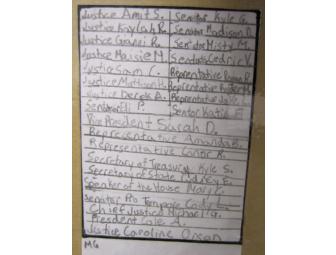 Justice Amit S. Senator Kyle G.
Justice Kaylah R. Senator Madison D.
Justice Gianni R. Senator Misty M.
Justice Maisie M. Senator Cedric V.
Justice Siam C. Representative
Justice Representative
Justice Derek A. Representative
Senator Eli P. Senator Katie
Vice President Sarah D.
Representative Amanda B.
Representative Conor K.
Secretary of Treasury Kyle S.
Secretary of State Sydney E.
Speaker of the House Mary C.
Senator Pro Tempore
Chief Justice Michael
President Cole A.
Justice Caroline
MG